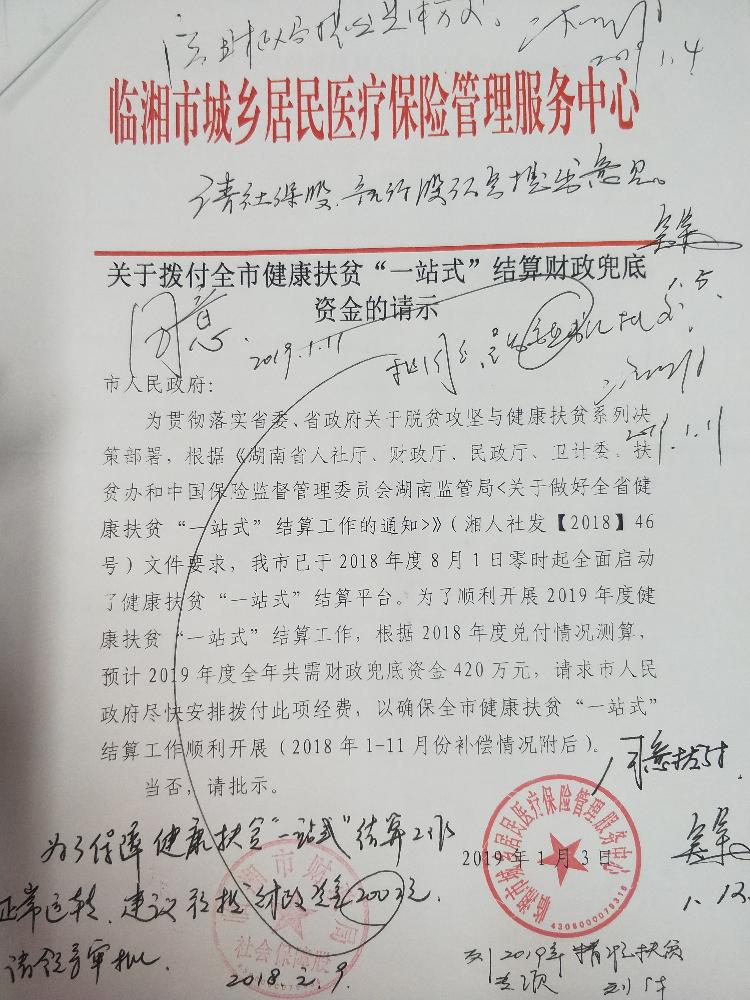 2019.1.4
临湘市城乡居民医疗保险管理服务中心
请社保股、
关于拨付全市健康扶贫“一站式”结算财政兜底
资金的请示
同意.
2019.1.11
市人民政府:
为贯彻落实省委、省政府关于脱贫攻坚与健康扶贫系列决
策部署，根据《湖南省人社厅、财政厅、民政厅、卫计委、扶
贫办和中国保险监督管理委员会湖南监管局<关于做好全省健
康扶贫“一站式”结算工作的通知>》（湘人社发【2018】46
号）文件要求，我市已于2018年度8月1日零时起全面启动
了健康扶贫“一站式”结算平台。为了顺利开展2019年度健
康扶贫“一站式”结算工作，根据2018年度兑付情况测算，
预计2019年度全年共需财政兜底资金420万元，请求市人民
政府尽快安排拨付此项经费，以确保全市健康扶贫“一站式”
结算工作顺利开展（2018年1-11月份补偿情况附后）。
当否，请批示。
同意拨付
2019年1月3日
临湘市城乡居民医疗保险管理服务中心
4306000079316
为了保障健康扶贫“一站式”结算工作
正常运转，建议拨财政资金200万元.
请领导审批.
社会保障股
2018.2.9.
列2019年精准扶贫
专项